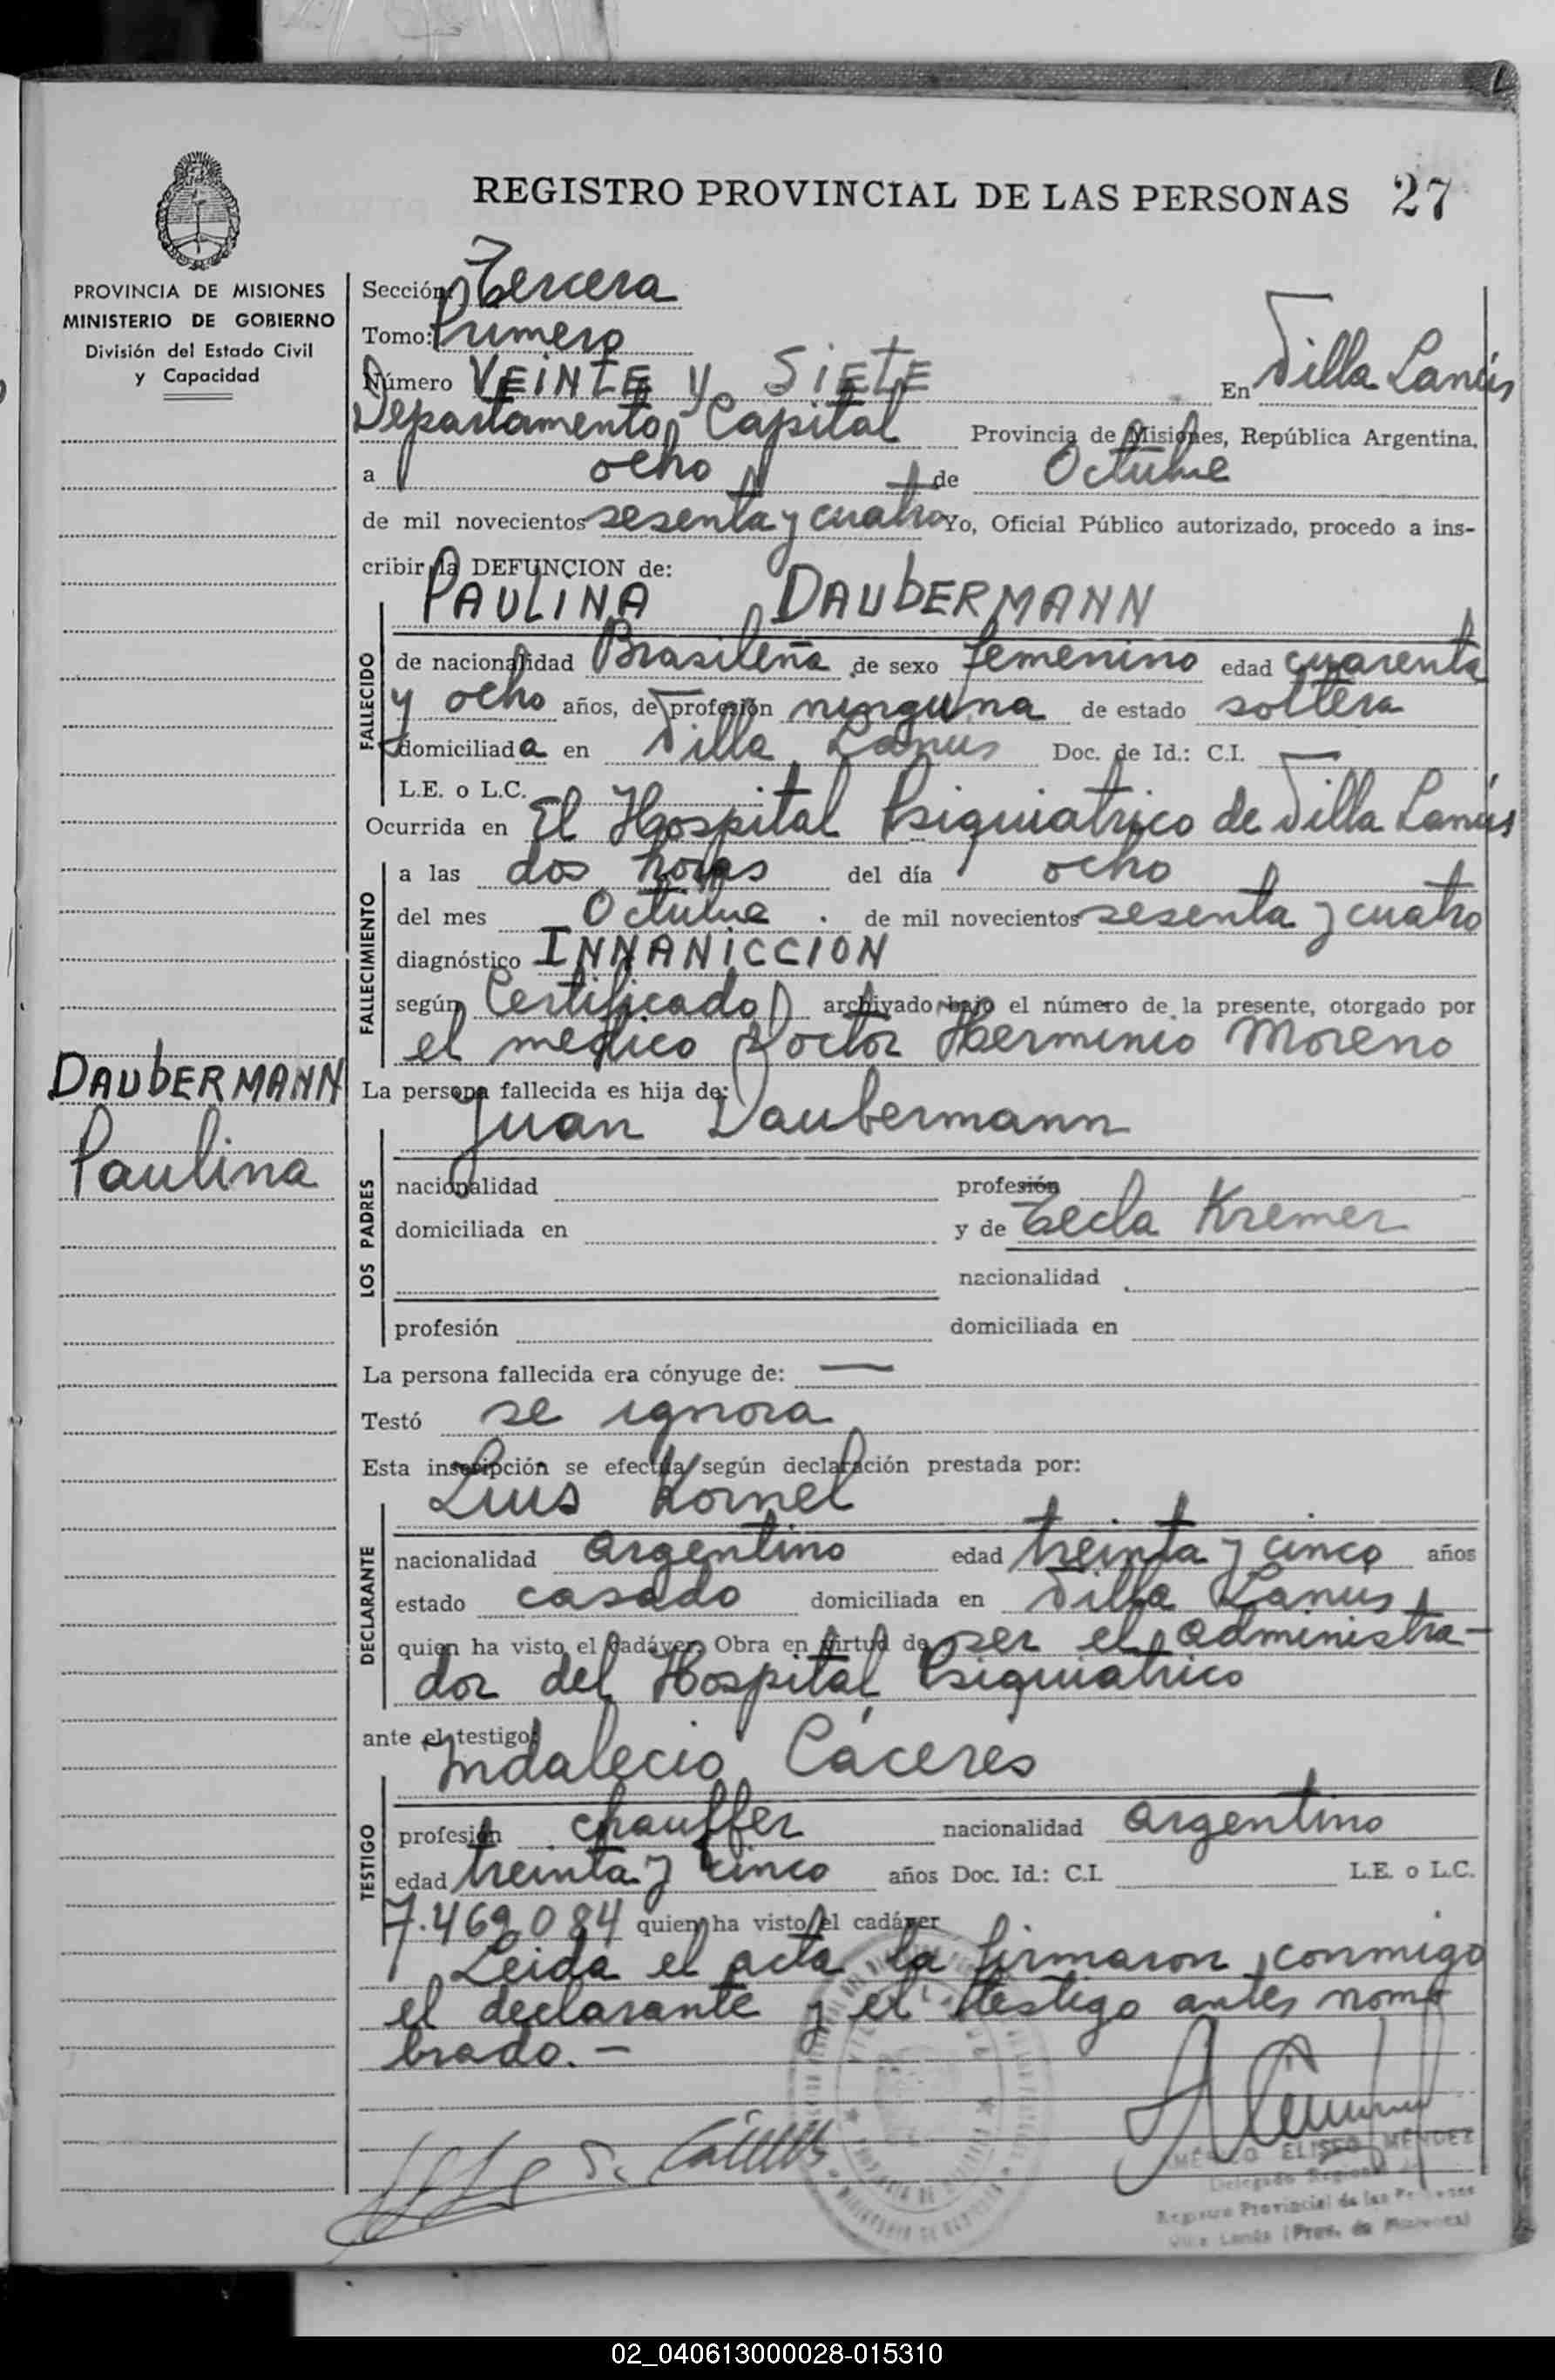 REGISTRO PROVINCIAL DE LAS PERSONAS 27
PROVINCIA DE MISIONES
MINISTERIO DE GOBIERNO
División del Estado Civil
y Capacidad
DAUBERMANN
Paulina
Sección: Tercera
Tomo: Primero
Número VEINTE y SIETE En Villa Lanús
Departamento Capital Provincia de Misiones, República Argentina,
a ocho de Octubre
de mil novecientos sesenta y cuatro Yo, Oficial Público autorizado, procedo a ins-
cribir la DEFUNCION de:
PAULINA DAUBERMANN
FALLECIDO
de nacionalidad Brasileña de sexo femenino edad cuarenta
y ocho años, de profesión ninguna de estado soltera
domiciliada en Villa Lanus Doc. de Id.: C.I. —
L.E. o L.C. —
Ocurrida en El Hospital Psiquiatrico de Villa Lanús
FALLECIMIENTO
a las dos horas del día ocho
del mes Octubre . de mil novecientos sesenta y cuatro
diagnóstico INNANICCION
según Certificado archivado bajo el número de la presente, otorgado por
el medico Doctor Herminio Moreno
La persona fallecida es hija de:
Juan Daubermann
LOS PADRES
nacionalidad profesión
domiciliada en y de Tecla Kremer
nacionalidad
profesión domiciliada en
La persona fallecida era cónyuge de: —
Testó se ignora
Esta inscripción se efectúa según declaración prestada por:
Luis Kornel
DECLARANTE
nacionalidad argentino edad treinta y cinco años
estado casado domiciliada en Villa Lanús
quien ha visto el cadáver. Obra en virtud de ser el administra-
dor del Hospital Psiquiatrico
ante el testigo:
Indalecio Cáceres
TESTIGO
profesión chauffer nacionalidad argentino
edad treinta y cinco años Doc. Id.: C.I. L.E. o L.C.
7.469.084 quien ha visto el cadáver
Leida el acta la firmaron conmigo
el declarante y el testigo antes nom-
brado.-
ELISEO MÉNDEZ
Delegado Regional del
Registro Provincial de las Personas
Villa Lanús (Prov. de Misiones)
02_040613000028-015310